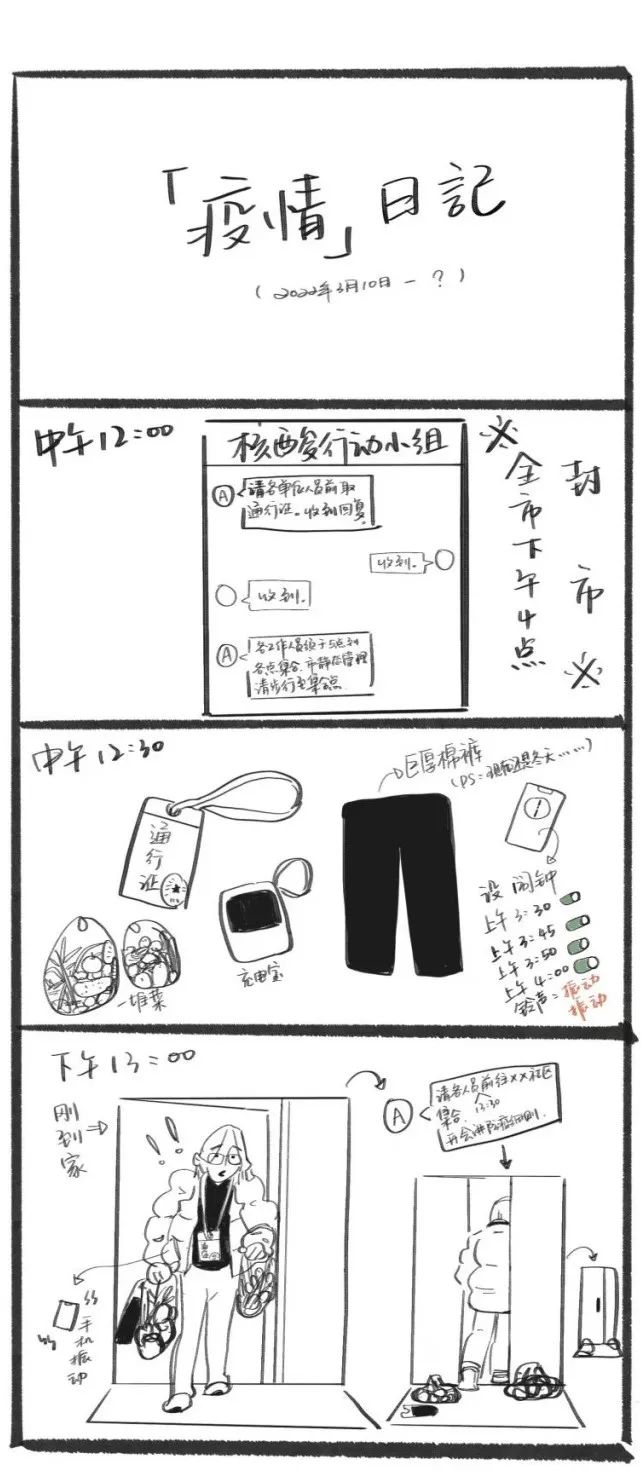 「疫情」日記
（2022年3月10日 — ？）
中午12:00
核酸行动小组
A
请各单位人员前取
通行证。收到回复
收到.
收到.
A
各工作人员须于5点到
各点集合.市静态管理
请步行至集合点
※全市下午4点
封市※
中午12:30
通行证
充电宝
一堆菜
巨厚棉裤
（PS:现在还是冬天……）
设闹钟
上午3:30
上午3:45
上午3:50
上午4:00
铃声:振动
振动
下午13:00
刚到家
手机振动
A
请各人员前往××社区
集合. 13:30
开会讲防疫细则.